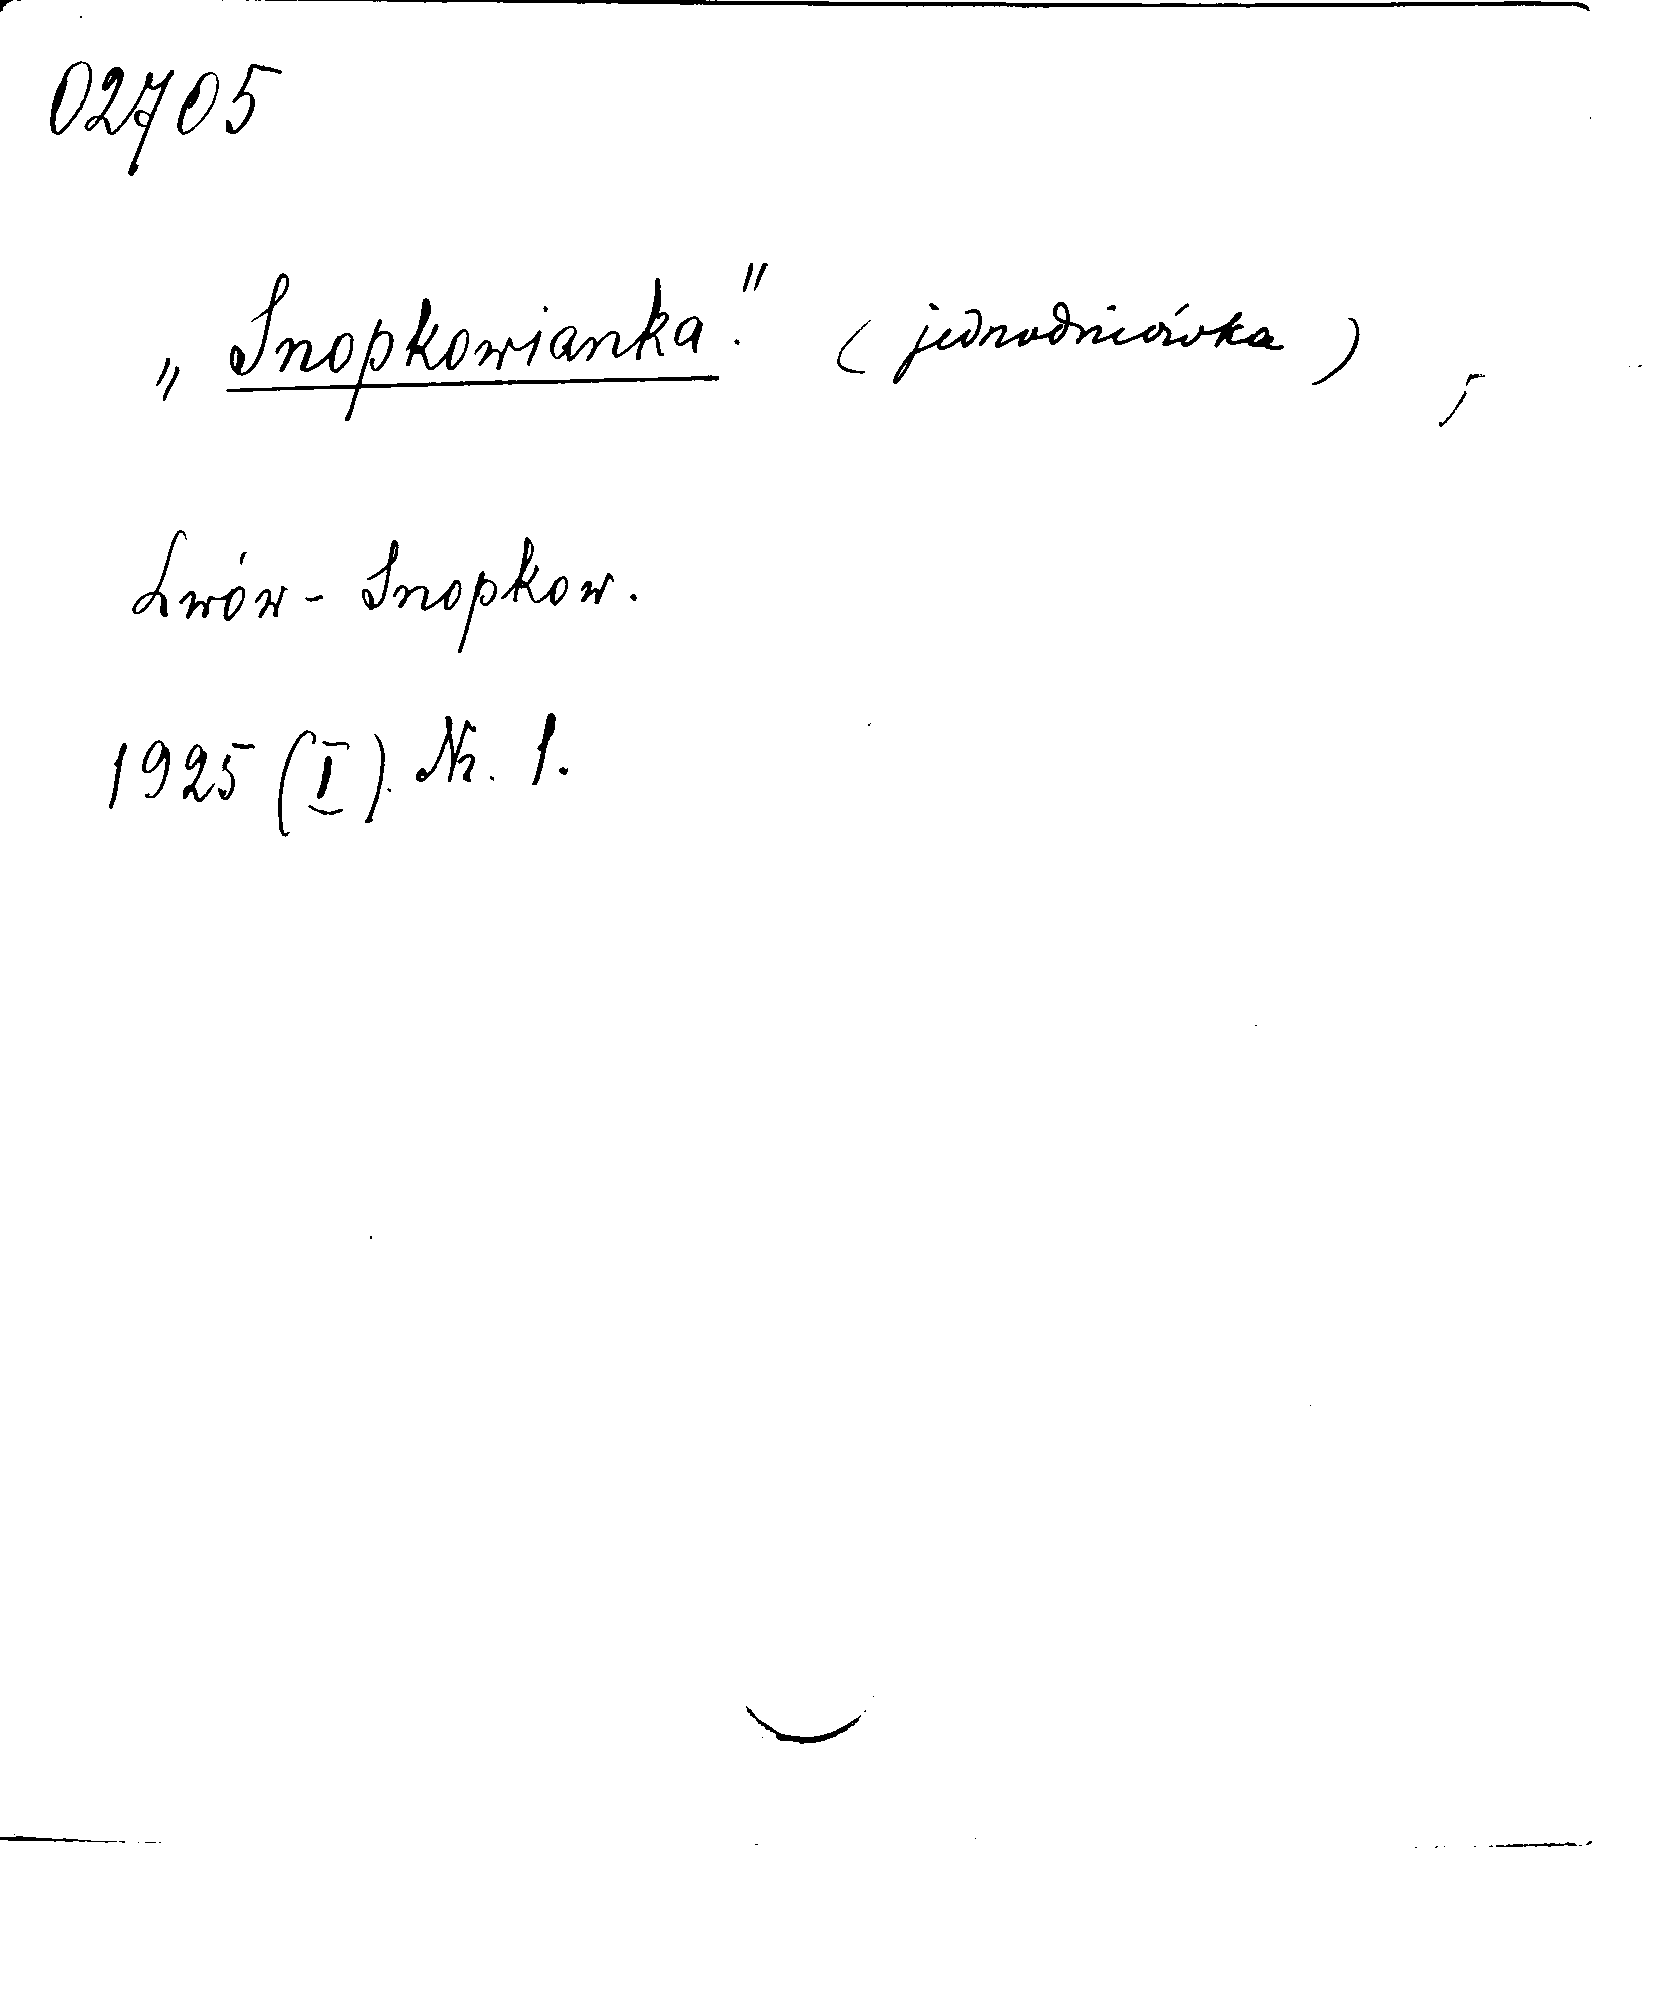 02705
„Snopkowianka." (jednodniówka),
Lwów - Snopkow.
1925 (I). Nr. 1.